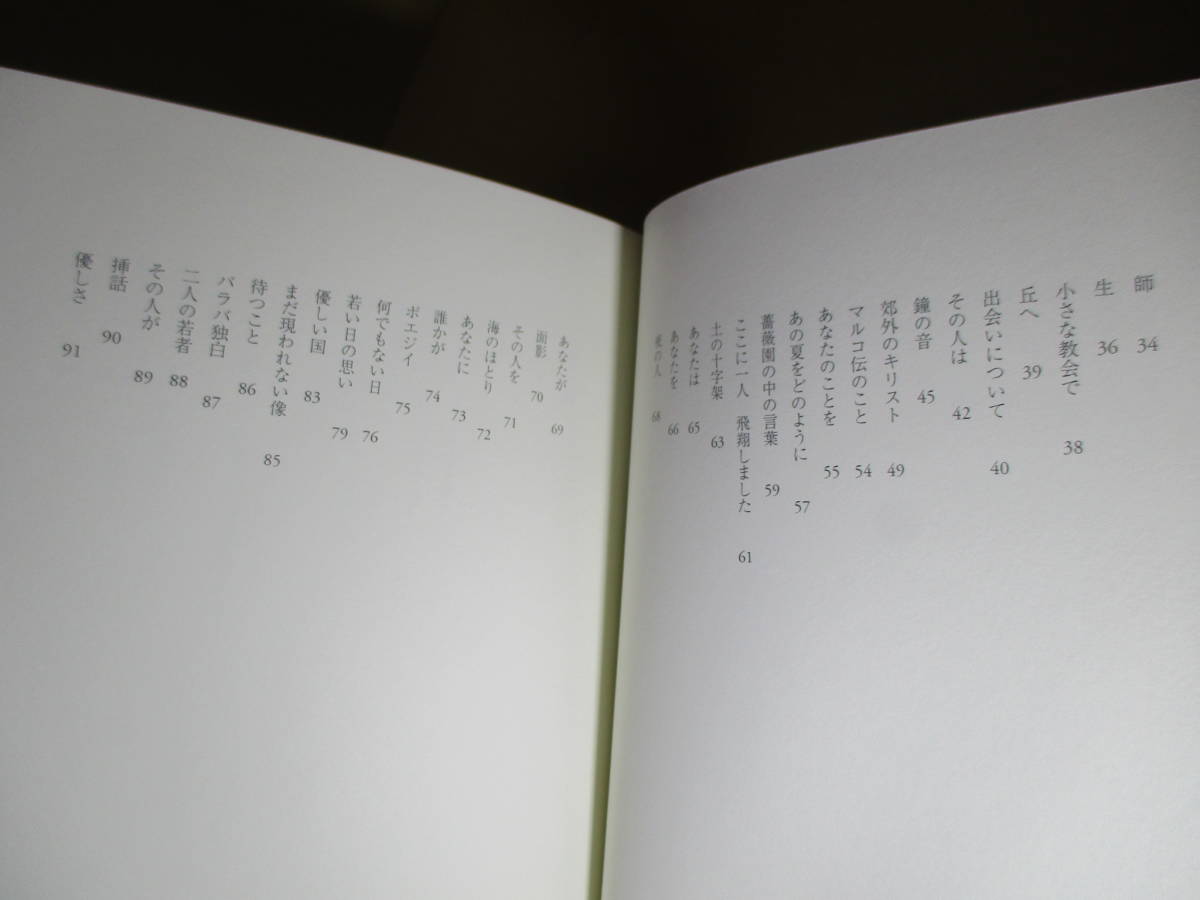 師 34
生 36
小さな教会で 38
丘へ 39
出会いについて 40
その人は 42
鐘の音 45
郊外のキリスト 49
マルコ伝のこと 54
あなたのことを 55
あの夏をどのように 57
薔薇園の中の言葉 59
ここに一人 飛翔しました 61
土の十字架 63
あなたは 65
あなたを 66
の人 68
あなたが 69
面影 70
その人を 71
海のほとり 72
あなたに 73
誰かが 74
ポエジイ 75
何でもない日 76
若い日の思い 79
優しい国 83
まだ現われない像 85
待つこと 86
バラバ独白 87
二人の若者 88
その人が 89
挿話 90
優しさ 91